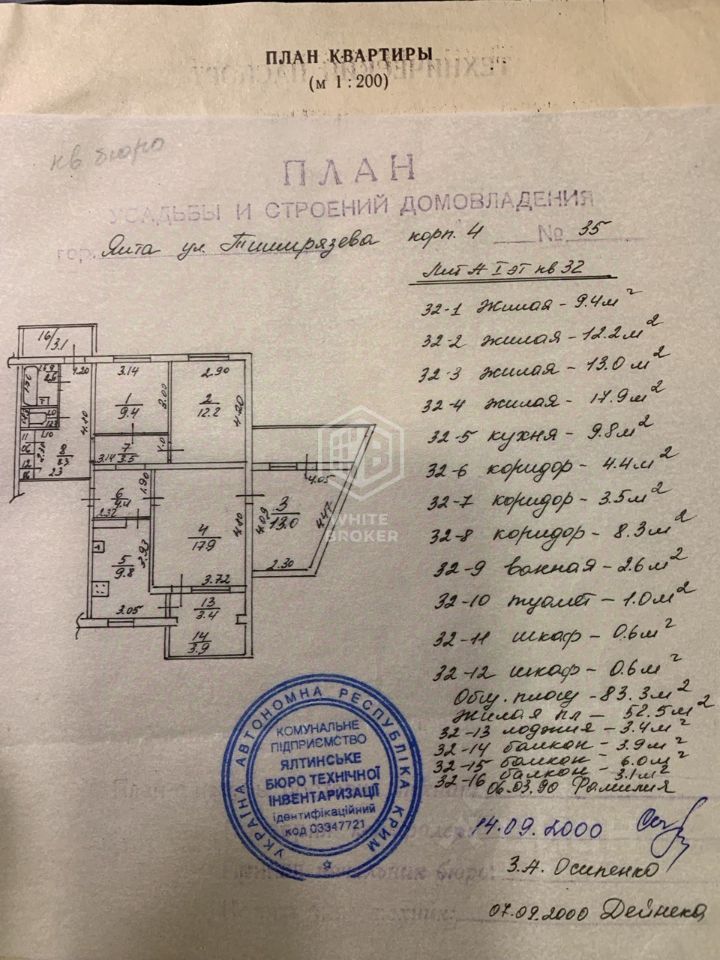 ПЛАН КВАРТИРЫ
(м 1 : 200)
кв бюро
ПЛАН
УСАДЬБЫ И СТРОЕНИЙ ДОМОВЛАДЕНИЯ
гор. Ялта ул. Тимирязева корп. 4 № 35
Лит А I эт кв 32
32-1 жилая - 9.4 м²
32-2 жилая - 12.2 м²
32-3 жилая - 13.0 м²
32-4 жилая - 17.9 м²
32-5 кухня - 9.8 м²
32-6 коридор - 4.4 м²
32-7 коридор - 3.5 м²
32-8 коридор - 8.3 м²
32-9 ванная - 2.6 м²
32-10 туалет - 1.0 м²
32-11 шкаф - 0.6 м²
32-12 шкаф - 0.6 м²
Общ. площ - 83.3 м²
жилая пл - 52.5 м²
32-13 лоджия - 3.4 м²
32-14 балкон - 3.9 м²
32-15 балкон - 6.0 м²
32-16 балкон - 3.1 м²
06.03.90 Фамилия
14.09.2000
З.А. Осипенко
07.09.2000 Дейнека
16/3.1
4.20
3.14
2.90
1
9.4
3.00
2
12.2
4.20
7
3.5
3.14
6
4.4
1.90
2.32
4
17.9
4.80
4.09
3
13.0
4.05
4.47
2.30
5
9.8
3.93
3.05
3.72
13
3.4
14
3.9
WHITE
BROKER
УКРАЇНА АВТОНОМНА РЕСПУБЛІКА КРИМ
КОМУНАЛЬНЕ
ПІДПРИЄМСТВО
ЯЛТИНСЬКЕ
БЮРО ТЕХНІЧНОЇ
ІНВЕНТАРИЗАЦІЇ
ідентифікаційний
код 03347721